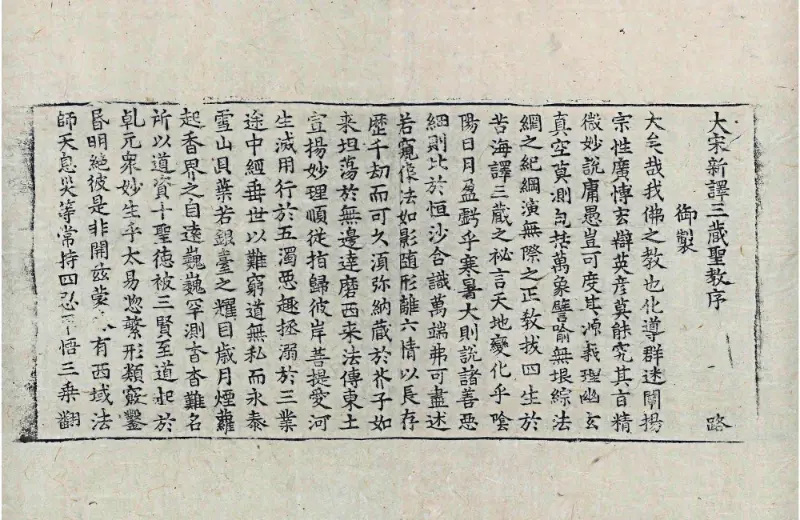 大宋新譯三藏聖教序 路
御製
大矣哉我佛之教也化導群迷闡揚
宗性廣博玄辯英彥莫能究其旨精
微妙說庸愚豈可度其源義理幽玄
真空莫測包括萬象譬喻無垠綜法
網之紀綱演無際之正教拔四生於
苦海譯三藏之秘言天地變化乎陰
陽日月盈虧乎寒暑大則說諸善惡
細則比於恒沙含識萬端弗可盡述
若窺像法如影隨形離六情以長存
歷千劫而可久須弥納藏於芥子如
来坦蕩於無邊達磨西来法傳東土
宣揚妙理順從指歸彼岸菩提愛河
生滅用行於五濁惡趣拯溺於三業
途中經垂世以難窮道無私而永泰
雪山貝葉若銀臺之耀目歲月煙蘿
起香界之自遠巍巍罕測杳杳難名
所以道資十聖德被三賢至道起於
乹元衆妙生乎太易惣繁形類竅鑿
昏明絕彼是非開兹蒙有西域法
師天息災等常持四忍悟三乘翻